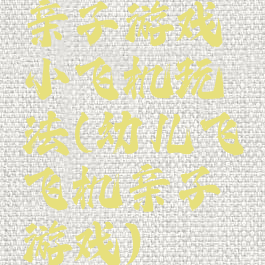 亲子游戏
小飞机玩
法(幼儿飞
飞机亲子
游戏)